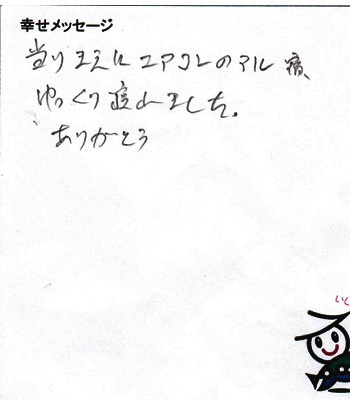 幸せメッセージ
当りまえにエアコンのアル宿、
ゆっくり寝れました。
ありがとう
いと